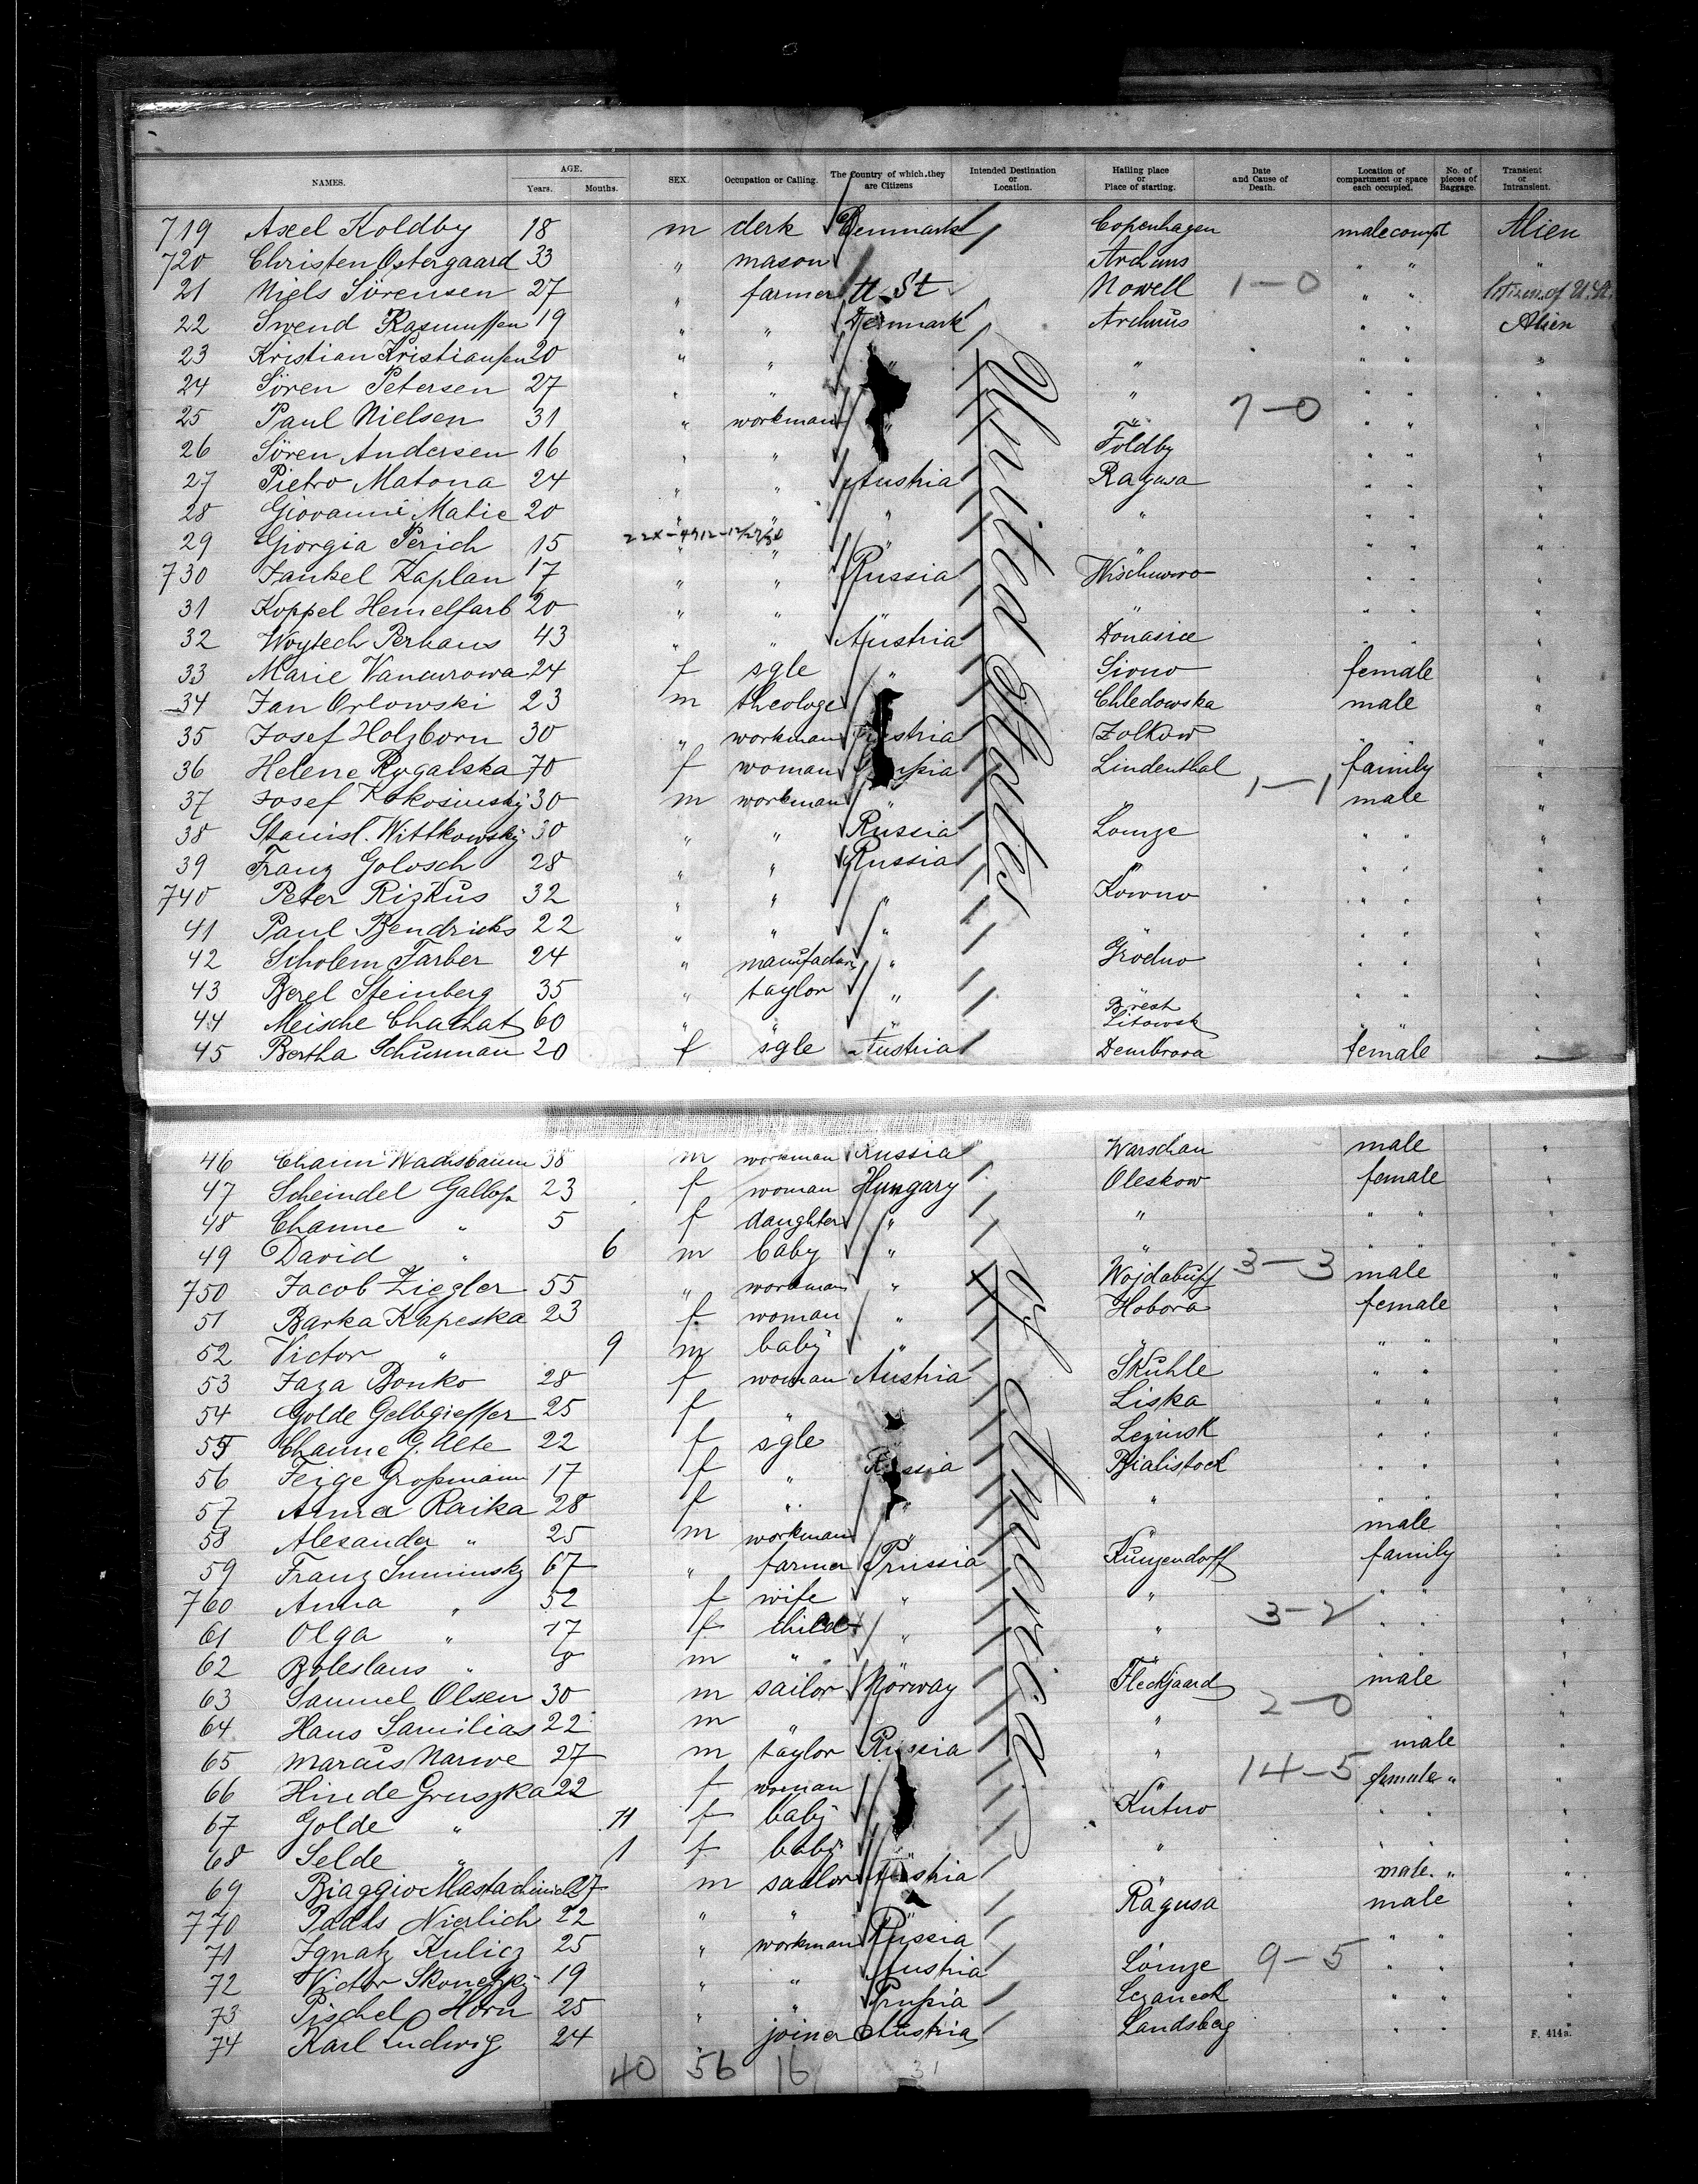 NAMES. AGE. Years. Months. SEX. Occupation or Calling. The Country of which they are Citizens Intended Destination or Location. Hailing place or Place of starting. Date and Cause of Death. Location of compartment or space each occupied. No. of pieces of Baggage. Transient or Intransient.
719 Axel Koldby 18 m clerk Denmark Copenhagen male compt Alien
720 Christen Ostergaard 33 " mason Archuus " " "
21 Niels Sörensen 27 " farmer U. St Nowell 1-0 " " Citizen of U.St.
22 Swend Rasmussen 19 " " Denmark Archuus " " Alien
23 Kristian Kristiansen 20 " " " " " " "
24 Sören Petersen 27 " " " " " "
25 Paul Nielsen 31 " workman " " 7-0 " " "
26 Sören Andersen 16 " " Foldby " " "
27 Pietro Matona 24 " " Austria Ragusa " " "
28 Giovanni Matic 20 " " " " " " "
29 Giorgia Perich 15 22X-4912-12/27/38 " " " " " " "
730 Jankel Kaplan 17 " " Russia Wischuwo " " "
31 Koppel Hemelfarb 20 " " " " " " "
32 Woytech Perhaus 43 " " Austria Donasice " " "
33 Marie Vancurowa 24 f sgle " Siono female "
34 Jan Orlowski 23 m theologe Chledowska male "
35 Josef Holzborn 30 " workman Austria Zolkow " " "
36 Helene Rygalska 70 f woman Prussia Lindenthal family "
37 Josef Kokosinsky 30 m workman " " 1-1 male "
38 Stanisl. Wittkowsky 30 " " Russia Lomze " " "
39 Franz Golosch 28 " " Russia " " " "
740 Peter Rizkus 32 " " " Kowno " " "
41 Paul Bendricks 22 " " " " " " "
42 Scholem Farber 24 " manufactur " Grodno " " "
43 Berel Steinberg 35 " taylor " " " " "
44 Meische Chachat 60 " " " Brest Litowsk " " "
45 Bertha Schurman 20 f sgle Austria Dembrova female
46 Chaim Wachsbaum 38 m workman Russia Warschau male "
47 Scheindel Gallop 23 f woman Hungary Oleskow female "
48 Channe " 5 f daughter " " " " "
49 David " 6 m baby " " 3-3 " " "
750 Jacob Ziegler 55 " workman " Wojdabuff male "
51 Barka Kapeska 23 f woman " Hobora female "
52 Victor " 9 m baby " " " " "
53 Jaga Bonko 28 f woman Austria Skuhle " " "
54 Golde Gelbgiesser 25 f " " Liska " " "
55 Channe G. Alte 22 f sgle Lezinsk " " "
56 Feige Grossmann 17 f " Russia Bjialistock " " "
57 Anna Raika 28 f " " " " " "
58 Alexander " 25 m workman " " male "
59 Franz Suminsky 67 " farmer Prussia Kunzendorff family "
760 Anna " 52 f wife " " " " "
61 Olga " 17 f child " " 3-2 " " "
62 Boleslaus " 8 m " " " " "
63 Samuel Olsen 30 m sailor Norway Fleckjaard male "
64 Hans Samilias 22 m " " " 2-0 " "
65 Marcus Narwe 27 m taylor Russia " male "
66 Hinde Gruszka 22 f woman " 14-5 female " "
67 Golde " 11 f baby Kutno " " "
68 Selde " 1 f baby " " " " "
69 Biaggio 27 m sailor Austria male " "
770 Paals Nierlich 22 " " " Ragusa male "
71 Ignatz Kulicz 25 " workman Russia " " " "
72 Victor 19 " " Austria Lomze 9-5 " " "
73 Pischel Horn 25 " " Prussia " " "
74 Karl Ludwig 24 " joiner Austria Landsberg " "
United States of America
40 56 16 31
F. 414a.